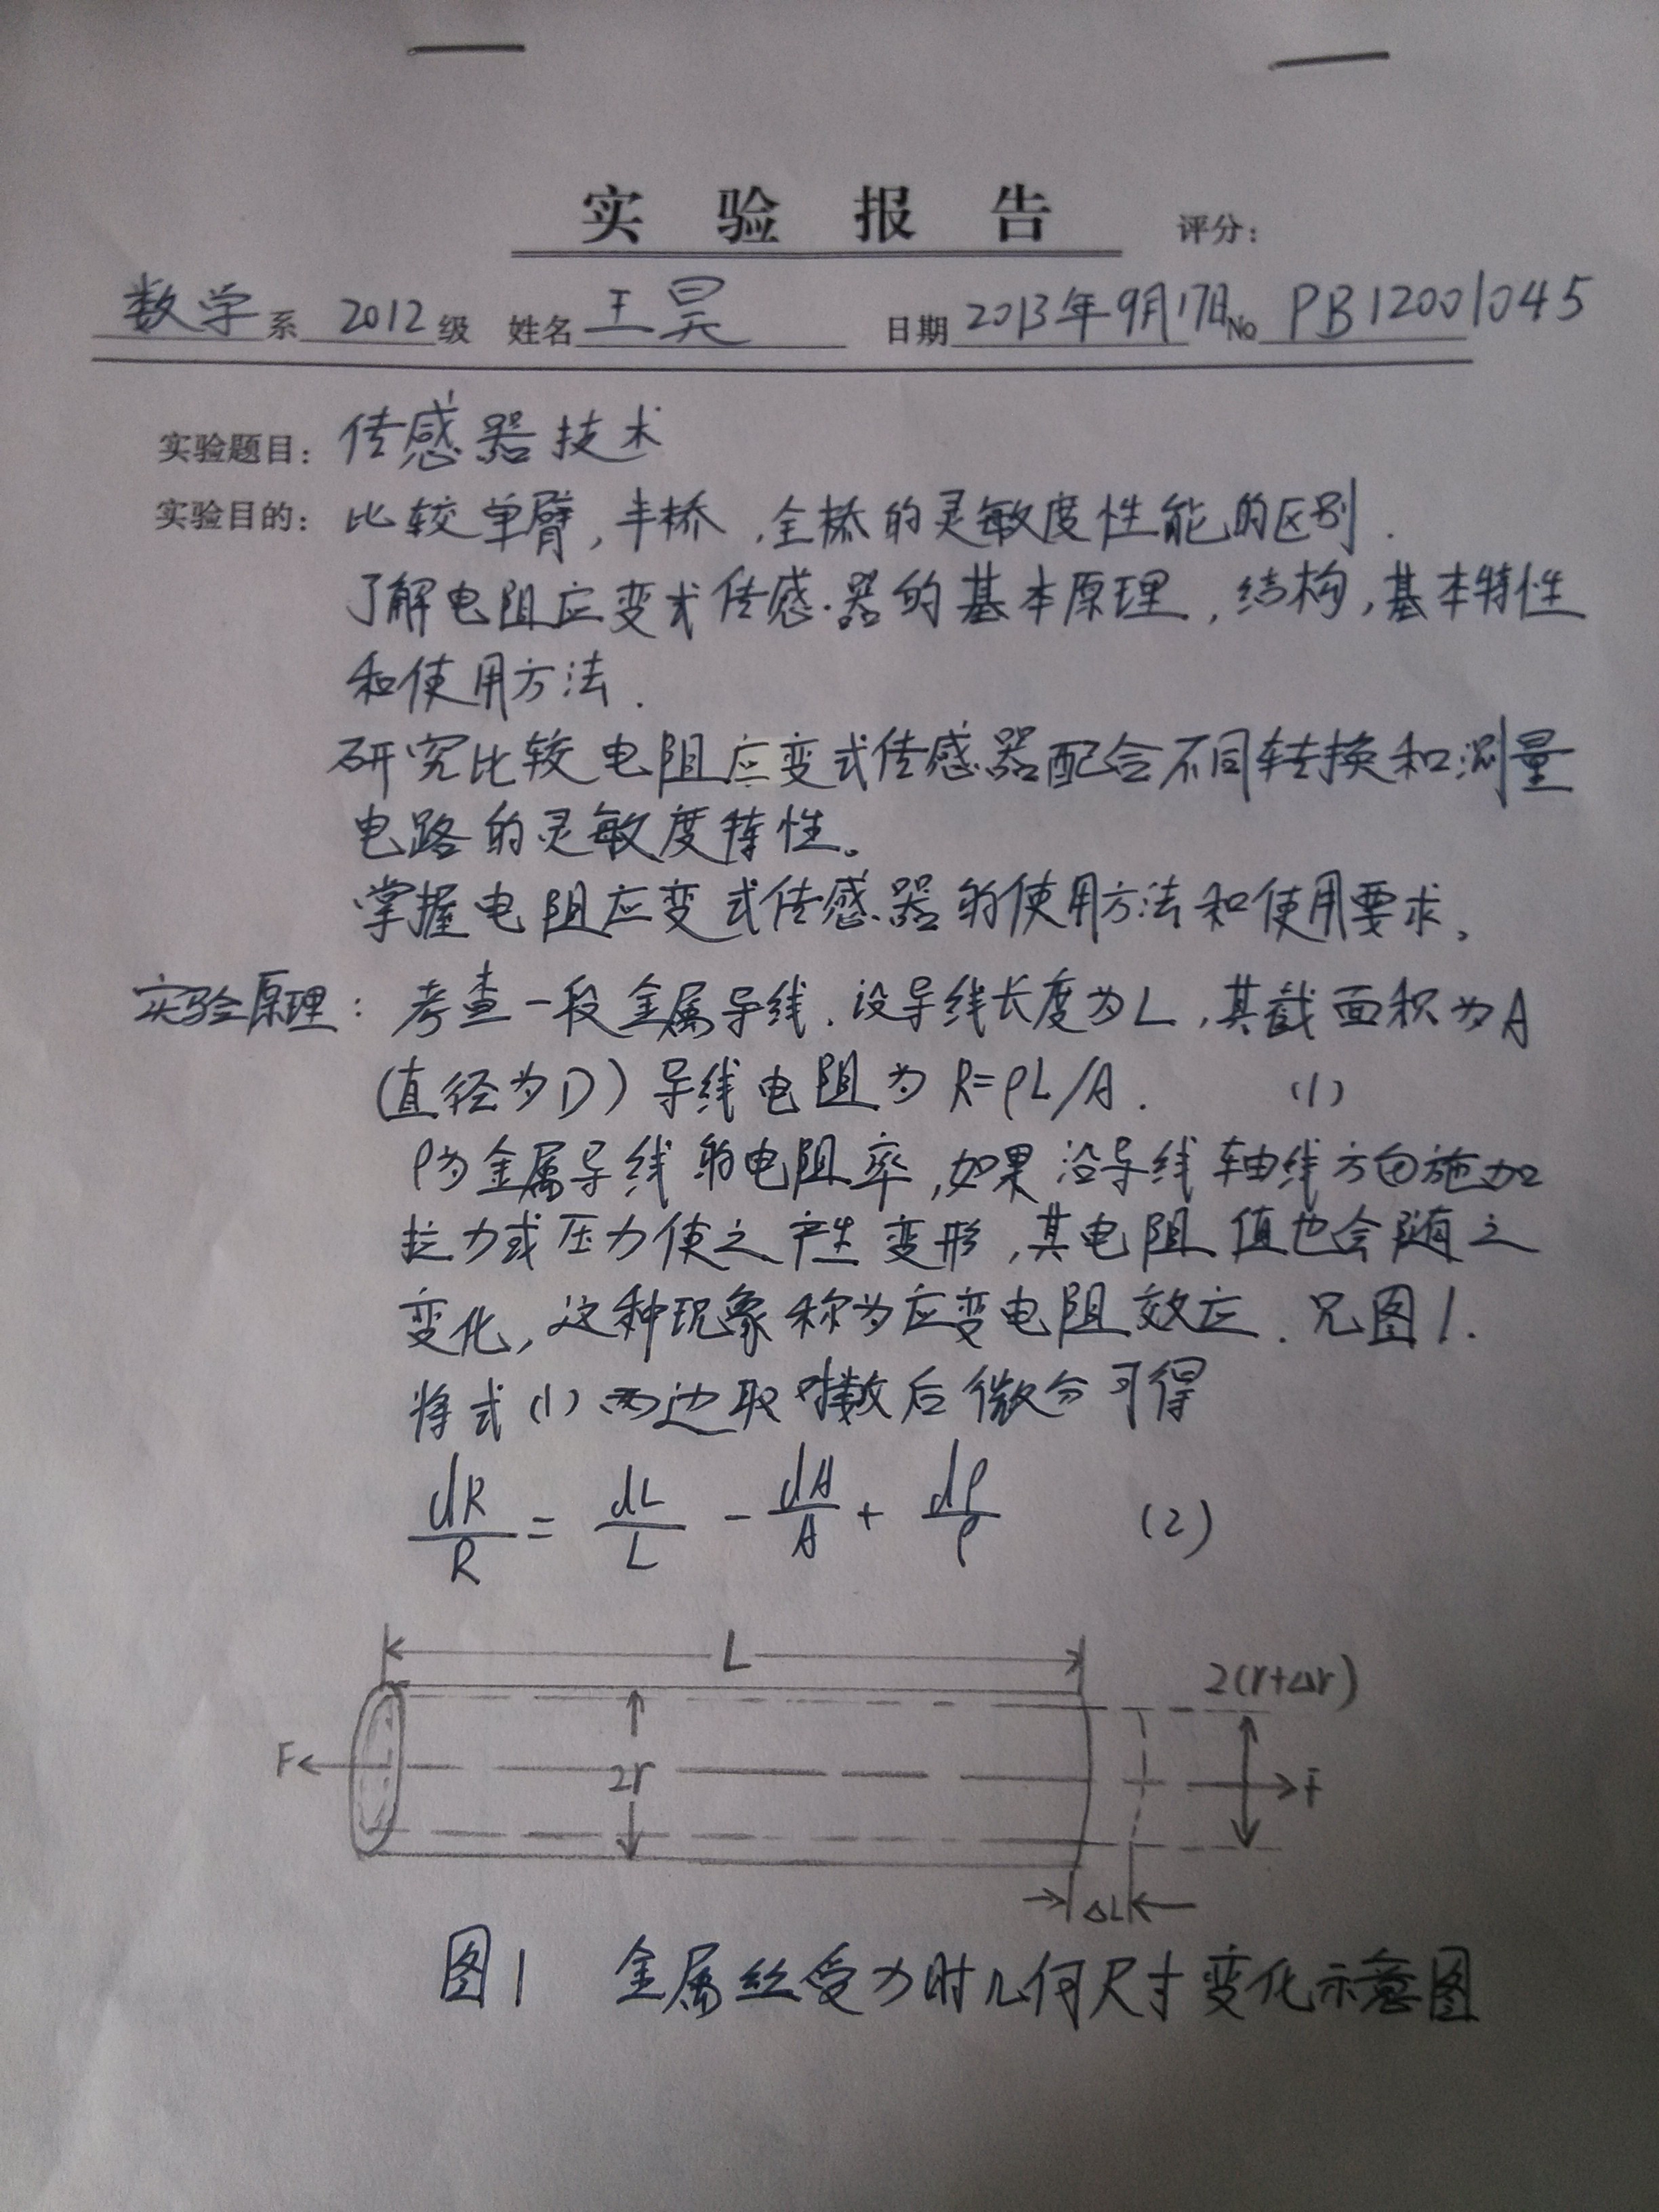 实验报告 评分:
数学系 2012级 姓名 王昊 日期 2013年9月17日 No PB12001045
实验题目: 传感器技术
实验目的: 比较单臂,半桥,全桥的灵敏度性能的区别.
了解电阻应变式传感器的基本原理,结构,基本特性
和使用方法.
研究比较电阻应变式传感器配合不同转换和测量
电路的灵敏度特性。
掌握电阻应变式传感器的使用方法和使用要求。
实验原理: 考查一段金属导线,设导线长度为L,其截面积为A
(直径为D)导线电阻为 R=ρL/A. (1)
ρ为金属导线的电阻率,如果沿导线轴线方向施加
拉力或压力使之产生变形,其电阻值也会随之
变化,这种现象称为应变电阻效应.见图1.
将式(1)两边取对数后微分可得
dR/R = dL/L - dA/A + dρ/ρ (2)
L
2(r+Δr)
F 2r F
ΔL
图1 金属丝受力时几何尺寸变化示意图